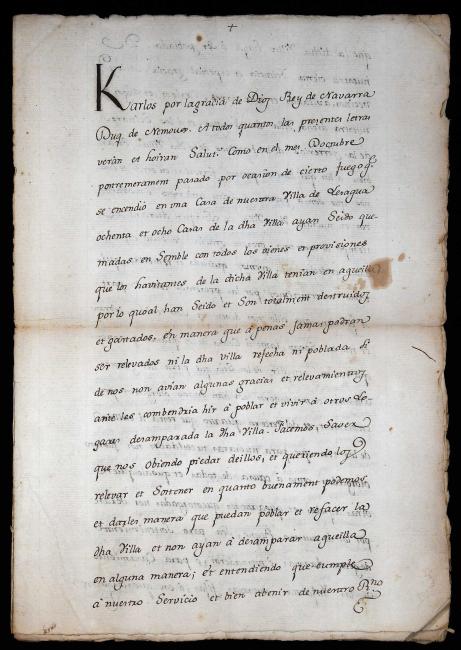 +
Karlos por la gracia de Dios Rey de Navarra
Duq. de Nemours. A todos quantos las presentes letras
verán et hoiran Salut. Como en el mes Doctubre
postremerament pasado por ocasion de cierto fuego q.
se encendió en una Casa de nuestra Villa de Lesaqua
ochenta et ocho Casas de la dha Villa ayan Seido que-
madas en Semble con todos los bienes et provisiones
que los havitantes de la dicha Villa tenian en aqueilla
por lo quoal han Seido et Son totalment destruidos
et gastados, en manera que á penas jamas podran
ser relevados ni la dha villa refecha ni poblada. Si
de nos non avian algunas gracias et relevamientos
ante les combendria hir á poblar et vivir á otros Lo-
gares desamparada la dha Villa. Facemos Saver
que nos obiendo piedat deillos, et queriendo los
relevar et Sostener en quanto buenament podemos
et darles manera que puedan poblar et refacer la
dha Villa et non ayan á desamparar aqueilla
en alguna manera; et entendiendo que cumple
á nuestro Servicio et bien abenir de nuestro Rno